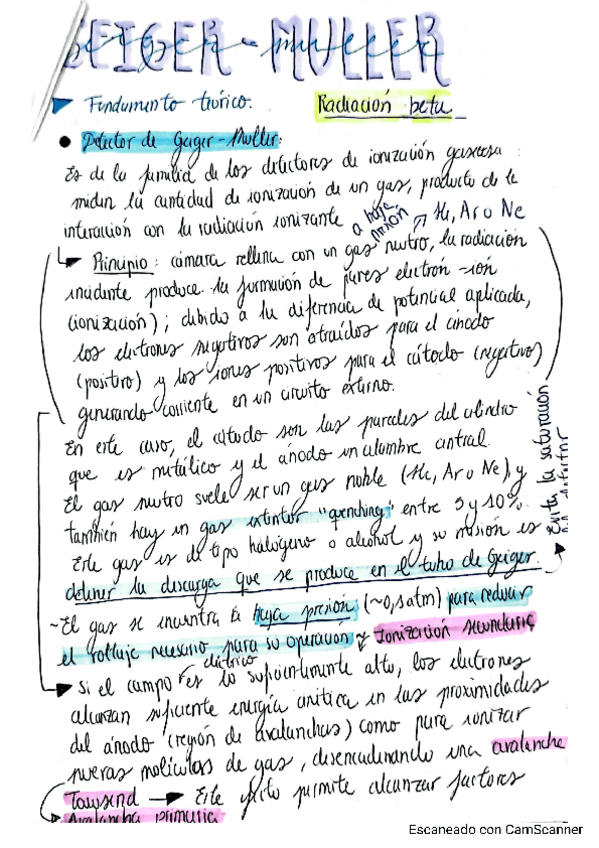 GEIGER-MULLER
geiger-muller
Fundamento teórico. Radiación beta
Detector de Geiger-Muller:
Es de la familia de los detectores de ionización gaseosa:
miden la cantidad de ionización de un gas, producto de la
interacción con la radiación ionizante
a baja presión He, Ar o Ne
Principio: cámara rellena con un gas neutro, la radiación
incidente produce la formación de pares electrón-ión
(ionización); debido a la diferencia de potencial aplicada,
los electrones negativos son atraídos para el ánodo
(positivo) y los iones positivos para el cátodo (negativo)
generando corriente en un circuito externo.
En este caso, el cátodo son las paredes del cilindro
que es metálico y el ánodo un alambre central.
El gas neutro suele ser un gas noble (He, Ar o Ne) y
también hay un gas extintor "quenching" entre 5 y 10%.
Este gas es de tipo halógeno o alcohol y su misión es
detener la descarga que se produce en el tubo de Geiger.
Evita la saturación
del detector
~El gas se encuentra a baja presión (~0,1atm) para reducir
el voltaje necesario para su operación Ionización secundaria
Si el campo eléctrico es lo suficientemente alto, los electrones
alcanzan suficiente energía cinética en las proximidades
del ánodo (región de avalanchas) como para ionizar
nuevas moléculas de gas, desencadenando una avalancha
Townsend Este efecto permite alcanzar factores
Avalancha primaria
Escaneado con CamScanner